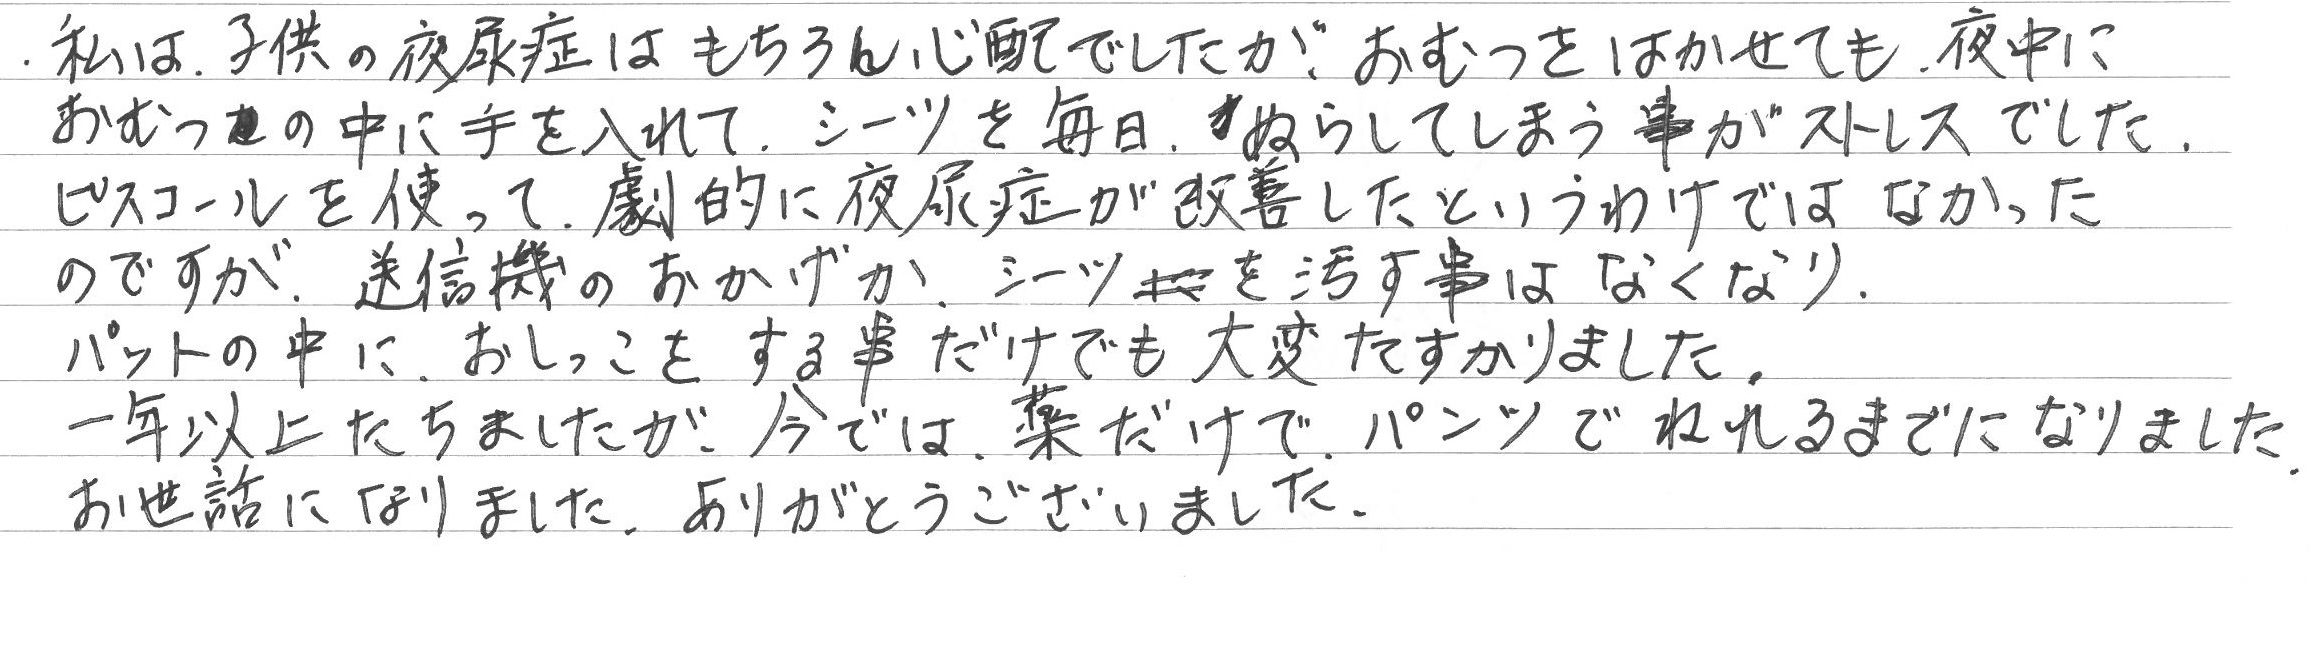 ・私は、子供の夜尿症はもちろん心配でしたが、おむつをはかせても、夜中に
おむつの中に手を入れて、シーツを毎日、ぬらしてしまう事がストレスでした。
ピスコールを使って、劇的に夜尿症が改善したというわけではなかった
のですが、送信機のおかげか、シーツを汚す事はなくなり、
パットの中に、おしっこをする事だけでも大変たすかりました。
一年以上たちましたが、今では、薬だけで、パンツでねれるまでになりました。
お世話になりました。ありがとうございました。